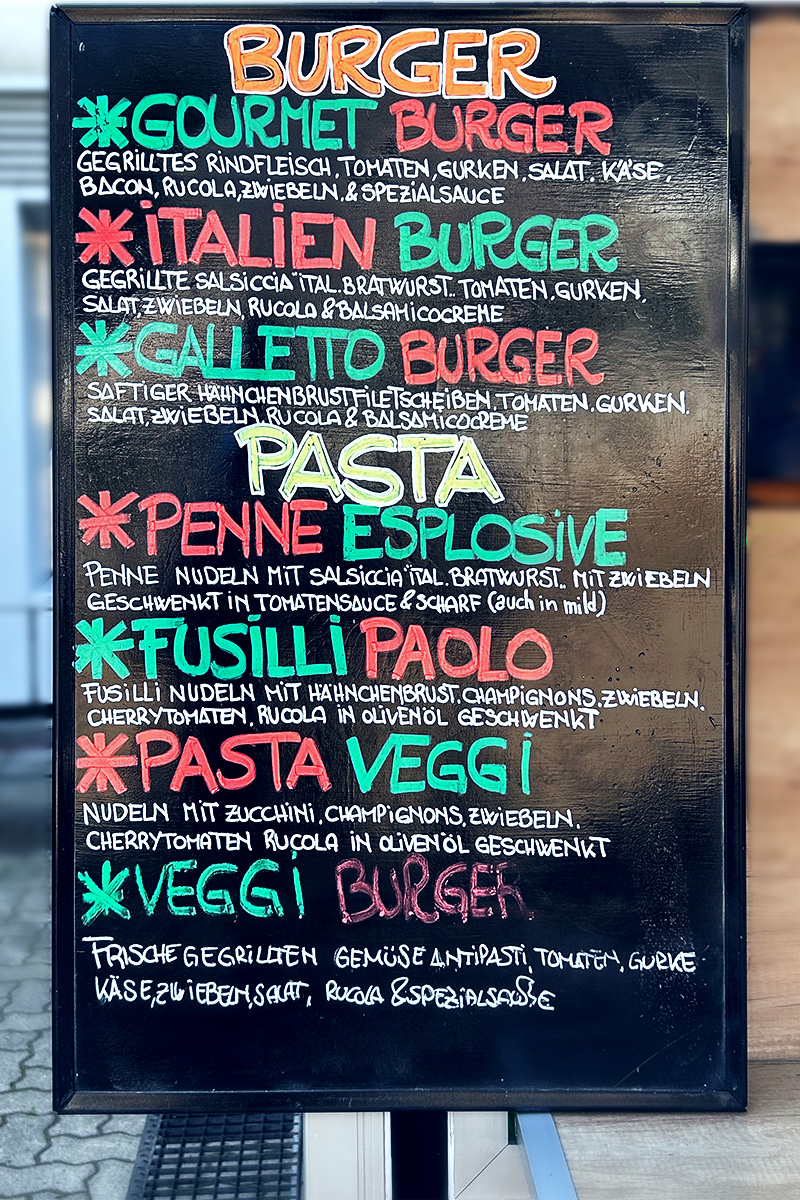 BURGER
*GOURMET BURGER
GEGRILLTES RINDFLEISCH, TOMATEN, GURKEN, SALAT, KÄSE,
BACON, RUCOLA, ZWIEBELN & SPEZIALSAUCE
*iTALIEN BURGER
GEGRILLTE SALSICCIA "ITAL. BRATWURST.. TOMATEN, GURKEN,
SALAT, ZWIEBELN, RUCOLA & BALSAMICOCREME
*GALLETTO BURGER
SAFTIGER HÄHNCHENBRUSTFILETSCHEIBEN, TOMATEN, GURKEN,
SALAT, ZWIEBELN, RUCOLA & BALSAMICOCREME
PASTA
*PENNE ESPLOSiVE
PENNE NUDELN MIT SALSICCIA "ITAL. BRATWURST.. MIT ZWIEBELN
GESCHWENKT IN TOMATENSAUCE & SCHARF (auch in mild)
*FUSiLLi PAOLO
FUSILLI NUDELN MIT HÄHNCHENBRUST, CHAMPIGNONS, ZWIEBELN,
CHERRYTOMATEN, RUCOLA IN OLIVENÖL GESCHWENKT
*PASTA VEGGi
NUDELN MIT ZUCCHINI, CHAMPIGNONS, ZWIEBELN,
CHERRYTOMATEN RUCOLA IN OLIVENÖL GESCHWENKT
*VEGGi BURGER
FRISCHE GEGRILLTEN GEMÜSE ANTIPASTI, TOMATEN, GURKE
KÄSE, ZWIEBELN, SALAT, RUCOLA & SPEZIALSAUßE